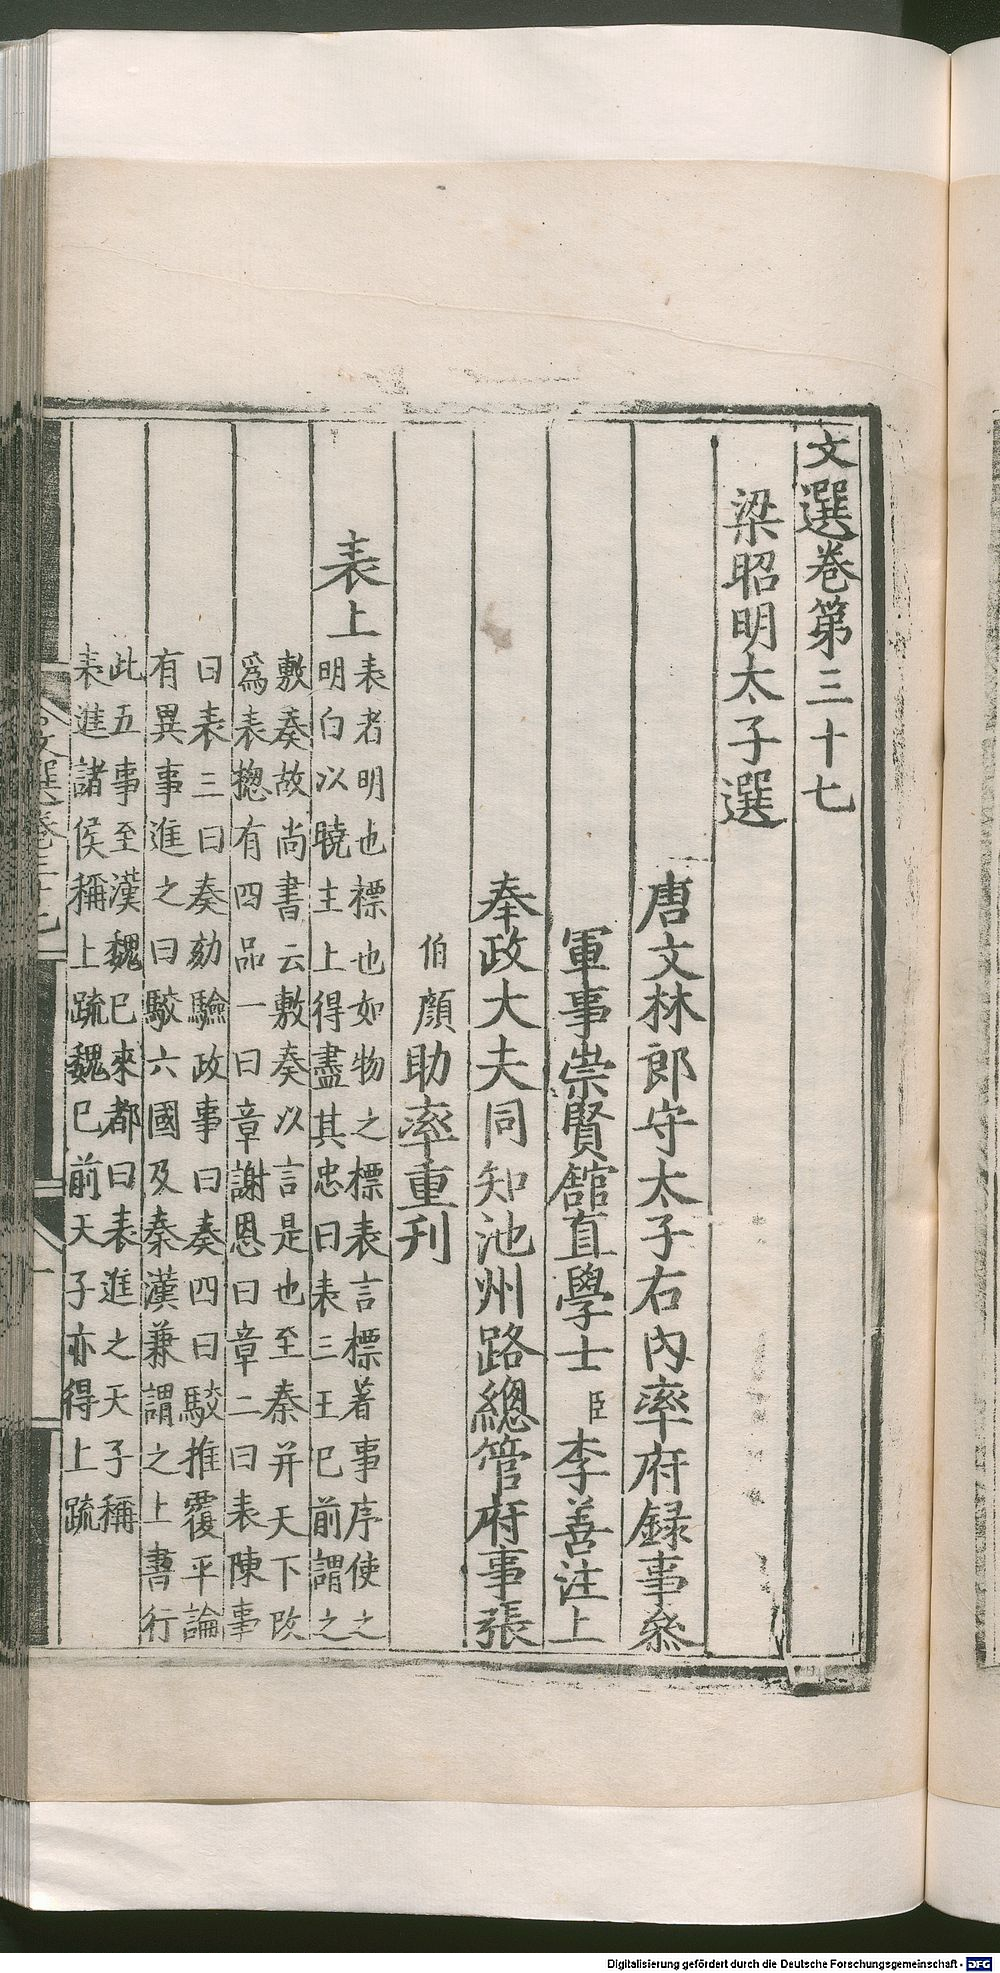 文選卷第三十七
梁昭明太子選
唐文林郎守太子右內率府録事叅
軍事崇賢舘直學士臣李善注上
奉政大夫同知池州路總管府事張
伯顔助率重刊
表上
表者明也標也如物之標表言標著事序使之
明白以曉主上得盡其忠曰表三王已前謂之
敷奏故尚書云敷奏以言是也至秦并天下改
爲表揔有四品一曰章謝恩曰章二曰表陳事
曰表三曰奏劾驗政事曰奏四曰駮推覆平論
有異事進之曰駮六國及秦漢兼謂之上書行
此五事至漢魏已來都曰表進之天子稱
表進諸侯稱上疏魏已前天子亦得上疏
文選卷三十七
一
Digitalisierung gefördert durch die Deutsche Forschungsgemeinschaft - DFG